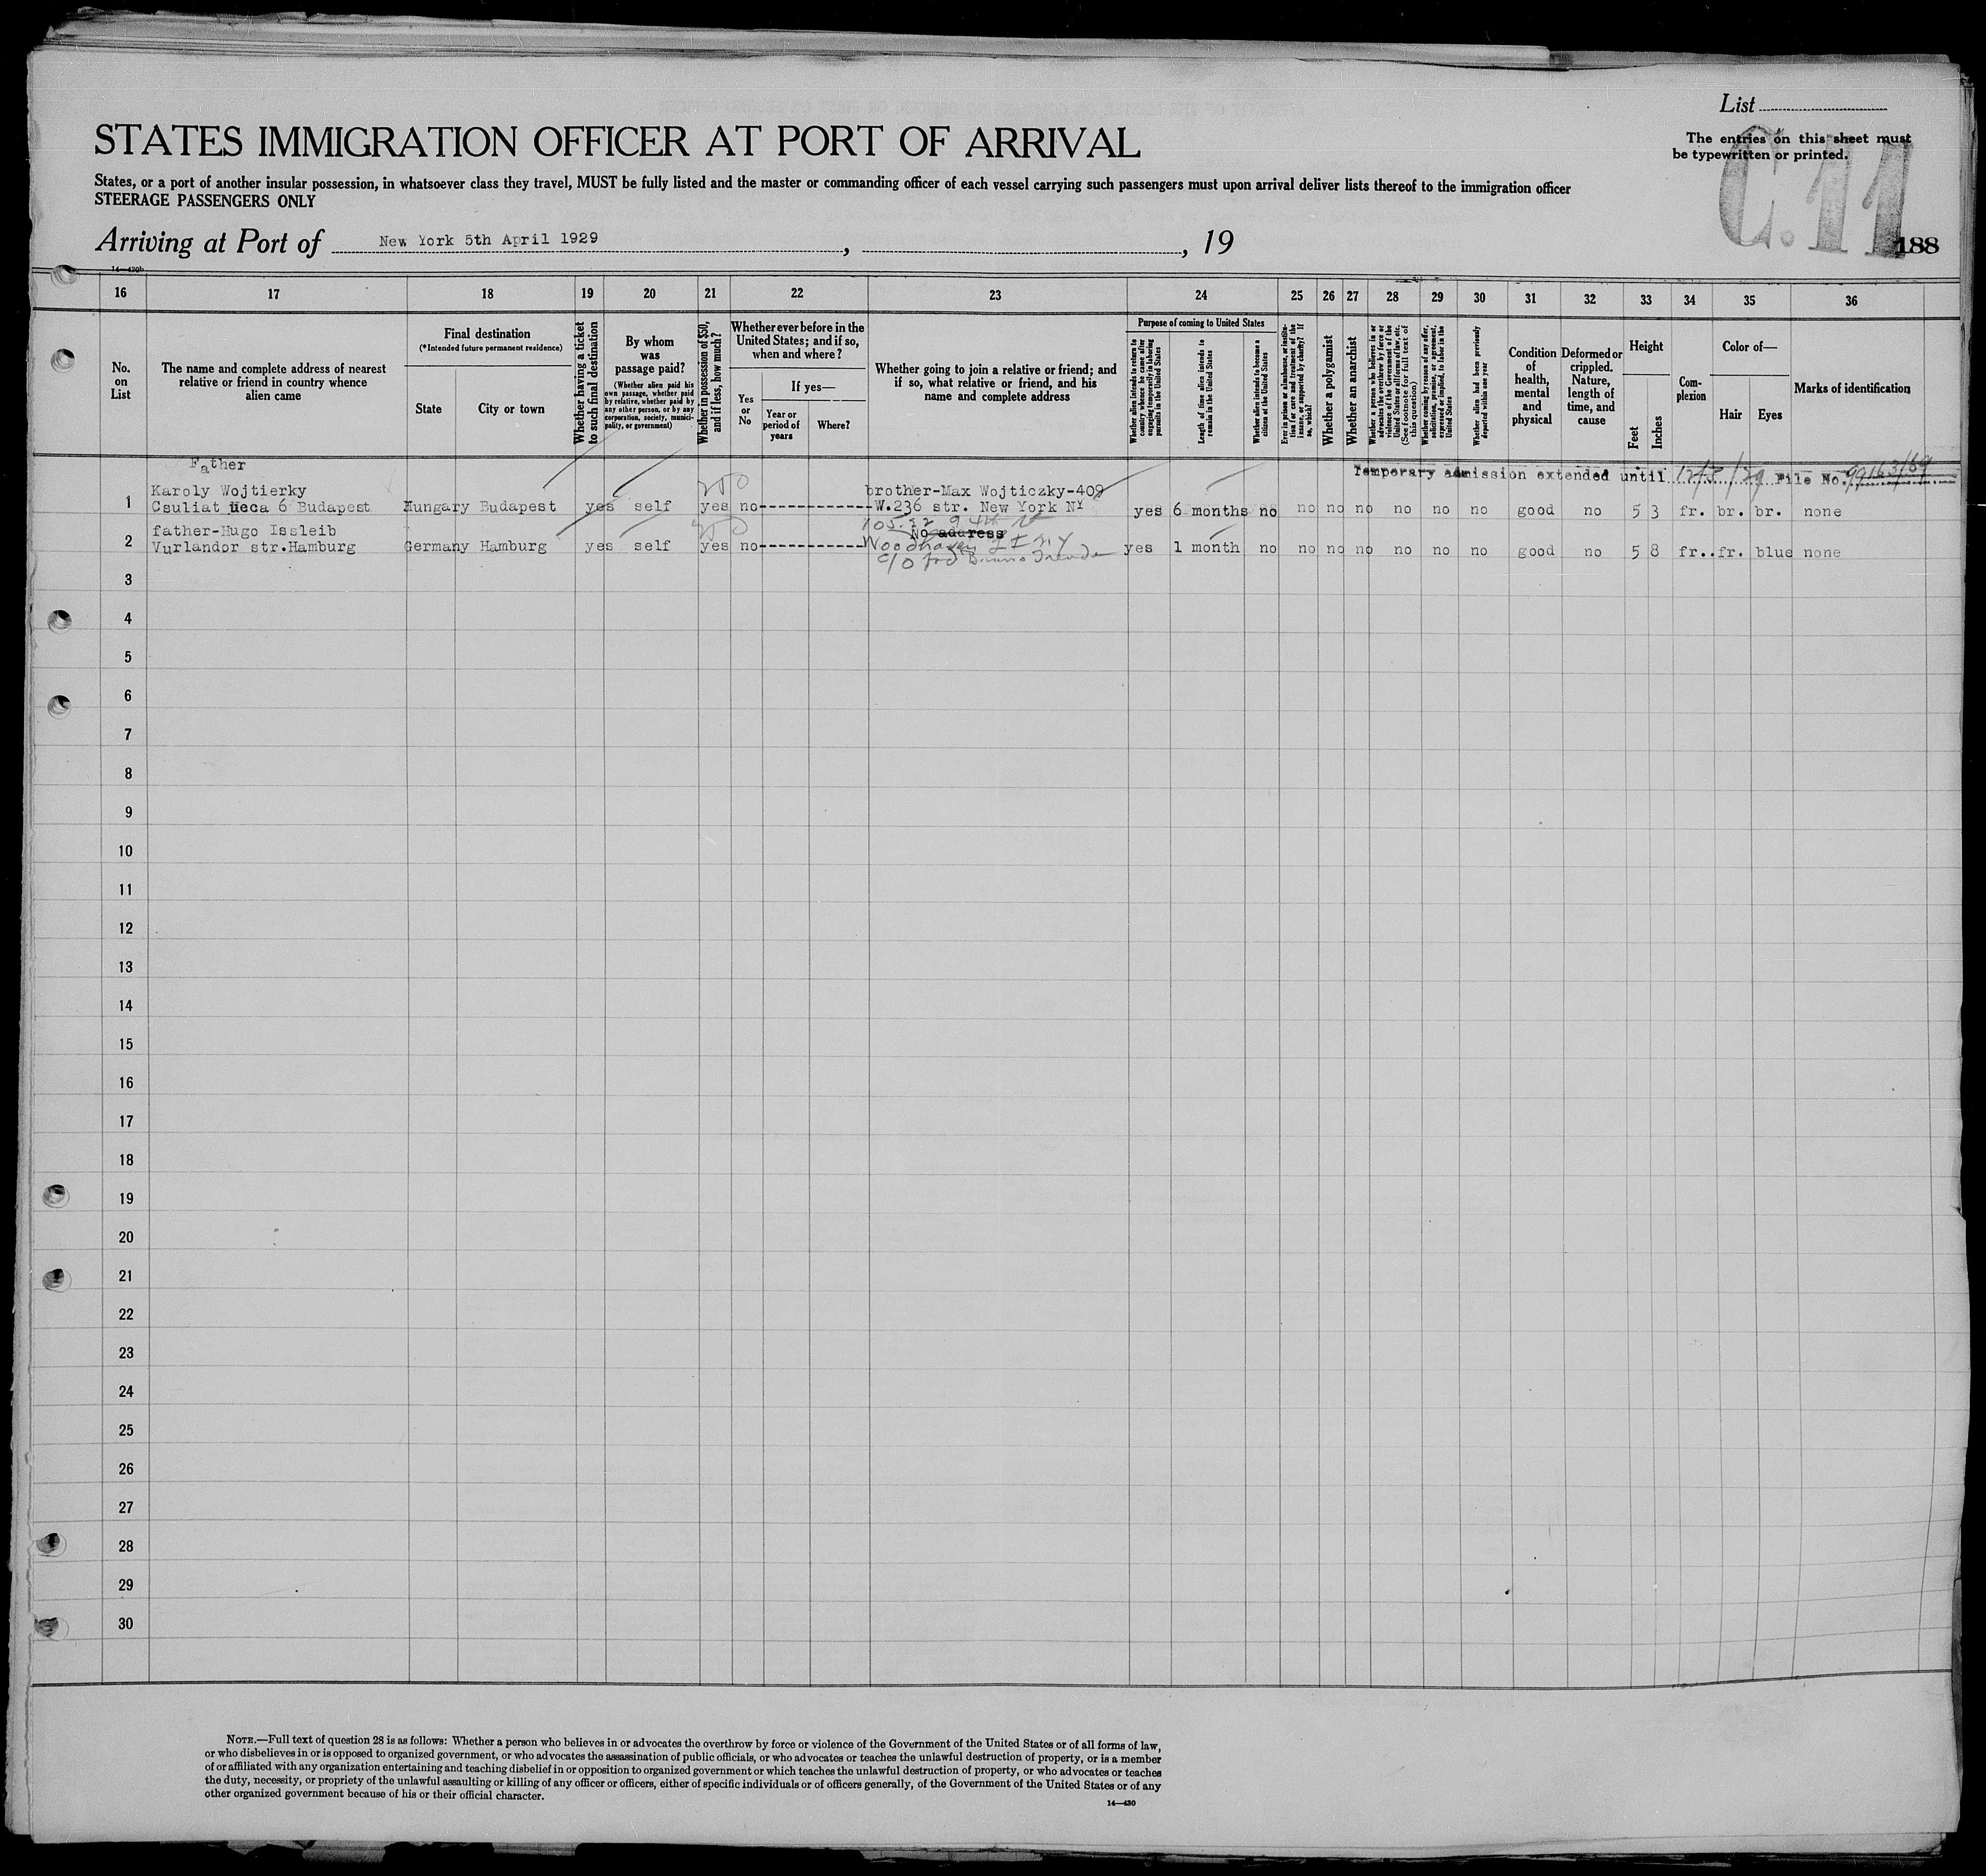 List
The entries on this sheet must
be typewritten or printed.
C.11
188
STATES IMMIGRATION OFFICER AT PORT OF ARRIVAL
States, or a port of another insular possession, in whatsoever class they travel, MUST be fully listed and the master or commanding officer of each vessel carrying such passengers must upon arrival deliver lists thereof to the immigration officer
STEERAGE PASSENGERS ONLY
Arriving at Port of New York 5th April 1929, , 19
14—430b
16 17 18 19 20 21 22 23 24 25 26 27 28 29 30 31 32 33 34 35 36
No.
on
List
The name and complete address of nearest
relative or friend in country whence
alien came
Final destination
(*Intended future permanent residence)
State
City or town
Whether having a ticket
to such final destination
By whom
was
passage paid?
(Whether alien paid his
own passage, whether paid
by relative, whether paid by
any other person, or by any
corporation, society, munici-
pality, or government)
Whether in possession of $50,
and if less, how much?
Whether ever before in the
United States; and if so,
when and where?
Yes
or
No
If yes—
Year or
period of
years
Where?
Whether going to join a relative or friend; and
if so, what relative or friend, and his
name and complete address
Purpose of coming to United States
Whether alien intends to return to
country whence he came after
engaging temporarily in laboring
pursuits in the United States
Length of time alien intends to
remain in the United States
Whether alien intends to become a
citizen of the United States
Ever in prison or almshouse, or institu-
tion for care and treatment of the
insane, or supported by charity? If
so, which?
Whether a polygamist
Whether an anarchist
Whether a person who believes in or
advocates the overthrow by force or
violence of the Government of the
United States or all forms of law, etc.
(See footnote for full text of
this question)
Whether coming by reason of any offer,
solicitation, promise, or agreement,
expressed or implied, to labor in the
United States
Whether alien had been previously
deported within one year
Condition
of
health,
mental
and
physical
Deformed or
crippled.
Nature,
length of
time, and
cause
Height
Feet
Inches
Com-
plexion
Color of—
Hair
Eyes
Marks of identification
Temporary admission extended until 12/5/29 File No. 99163/69
Father
Karoly Wojtierky
250
brother-Max Wojticzky-409
1 Csuliat ueca 6 Budapest Hungary Budapest yes self yes no W.236 str. New York NY yes 6 months no no no no no no no good no 5 3 fr. br. br. none
father-Hugo Issleib
105-22 94th St
No address
2 Vurlandor str.Hamburg Germany Hamburg yes self yes no Woodhaven L I N Y yes 1 month no no no no no no no good no 5 8 fr..fr. blue none
c/o frd Bruno
3
4
5
6
7
8
9
10
11
12
13
14
15
16
17
18
19
20
21
22
23
24
25
26
27
28
29
30
NOTE.—Full text of question 28 is as follows: Whether a person who believes in or advocates the overthrow by force or violence of the Government of the United States or of all forms of law,
or who disbelieves in or is opposed to organized government, or who advocates the assassination of public officials, or who advocates or teaches the unlawful destruction of property, or is a member
of or affiliated with any organization entertaining and teaching disbelief in or opposition to organized government or which teaches the unlawful destruction of property, or who advocates or teaches
the duty, necessity, or propriety of the unlawful assaulting or killing of any officer or officers, either of specific individuals or of officers generally, of the Government of the United States or of any
other organized government because of his or their official character.
14—430